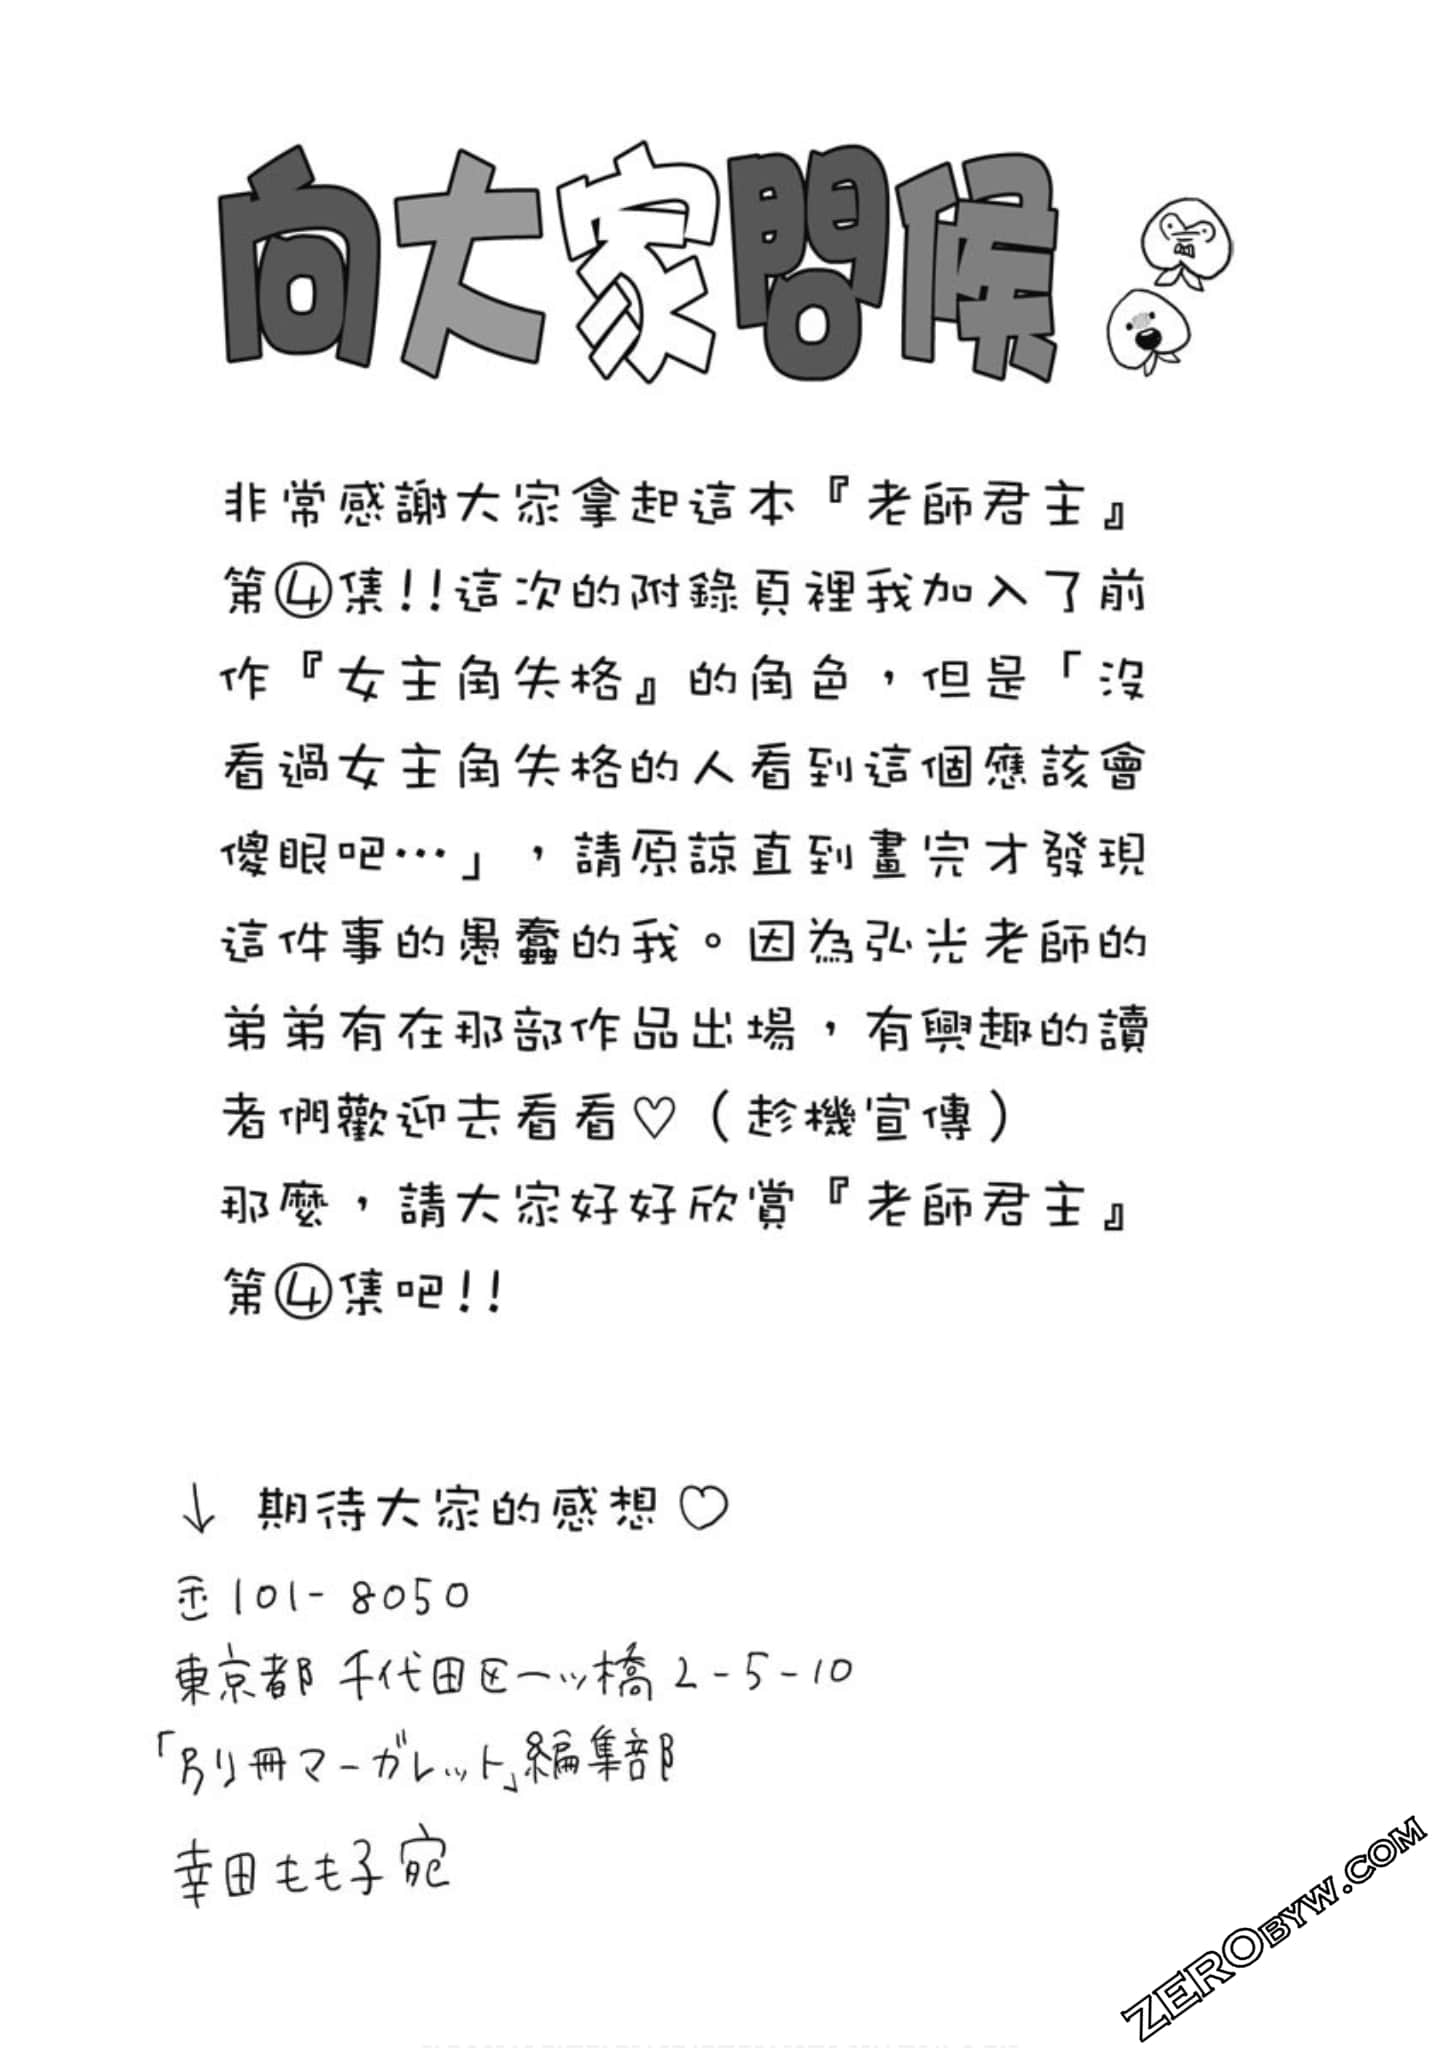 向大家問候
非常感謝大家拿起這本『老師君主』
第④集!!這次的附錄頁裡我加入了前
作『女主角失格』的角色，但是「沒
看過女主角失格的人看到這個應該會
傻眼吧…」，請原諒直到畫完才發現
這件事的愚蠢的我。因為弘光老師的
弟弟有在那部作品出場，有興趣的讀
者們歡迎去看看♡（趁機宣傳）
那麼，請大家好好欣賞『老師君主』
第④集吧!!
↓ 期待大家的感想♡
〒101-8050
東京都千代田区一ッ橋2-5-10
「別冊マーガレット」編集部
幸田もも子宛
ZEROBYW.COM